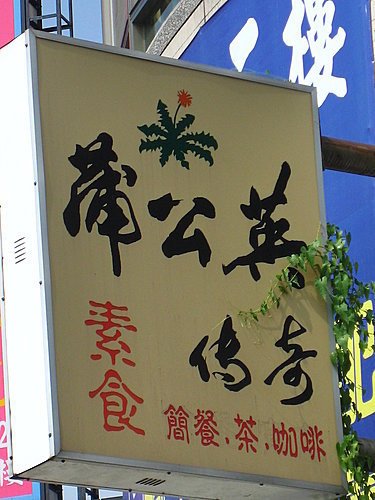 蒲公英
传奇
素食
簡餐.茶.咖啡
樓